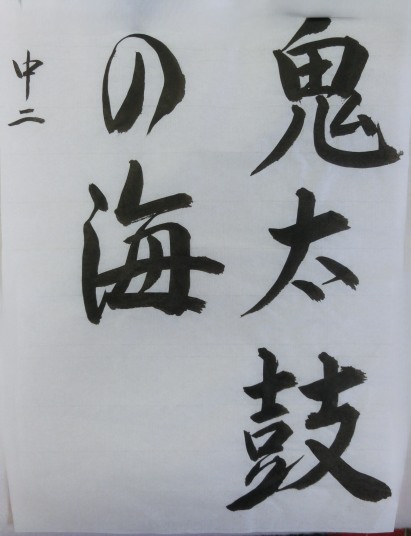 鬼太鼓
の海
中二